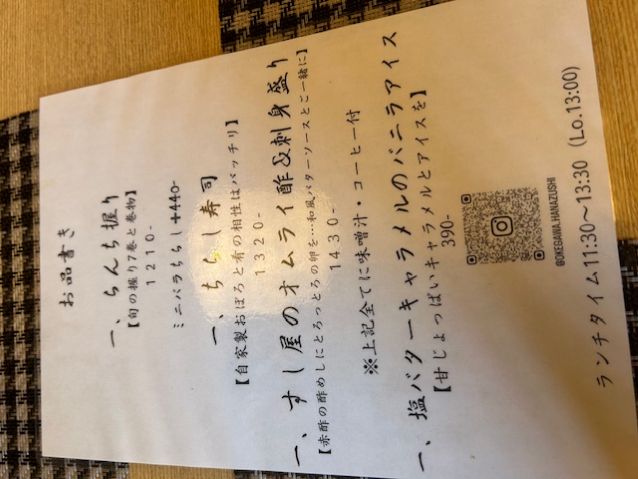 お品書き
一、らんち握り
【旬の握り7巻と巻物】
1210-
ミニバラちらし+440-
一、ちらし寿司
【自家製おぼろと肴の相性はバッチリ】
1320-
一、すし屋のオムライ酢&刺身盛り
【赤酢の酢めしにとろっとろの卵を…和風バターソースとご一緒に】
1430-
※上記全てに味噌汁・コーヒー付
一、塩バターキャラメルのバニラアイス
【甘じょっぱいキャラメルとアイスを】
390-
@OKEGAWA.HANAZUSHI
ランチタイム11:30〜13:30 (Lo.13:00)